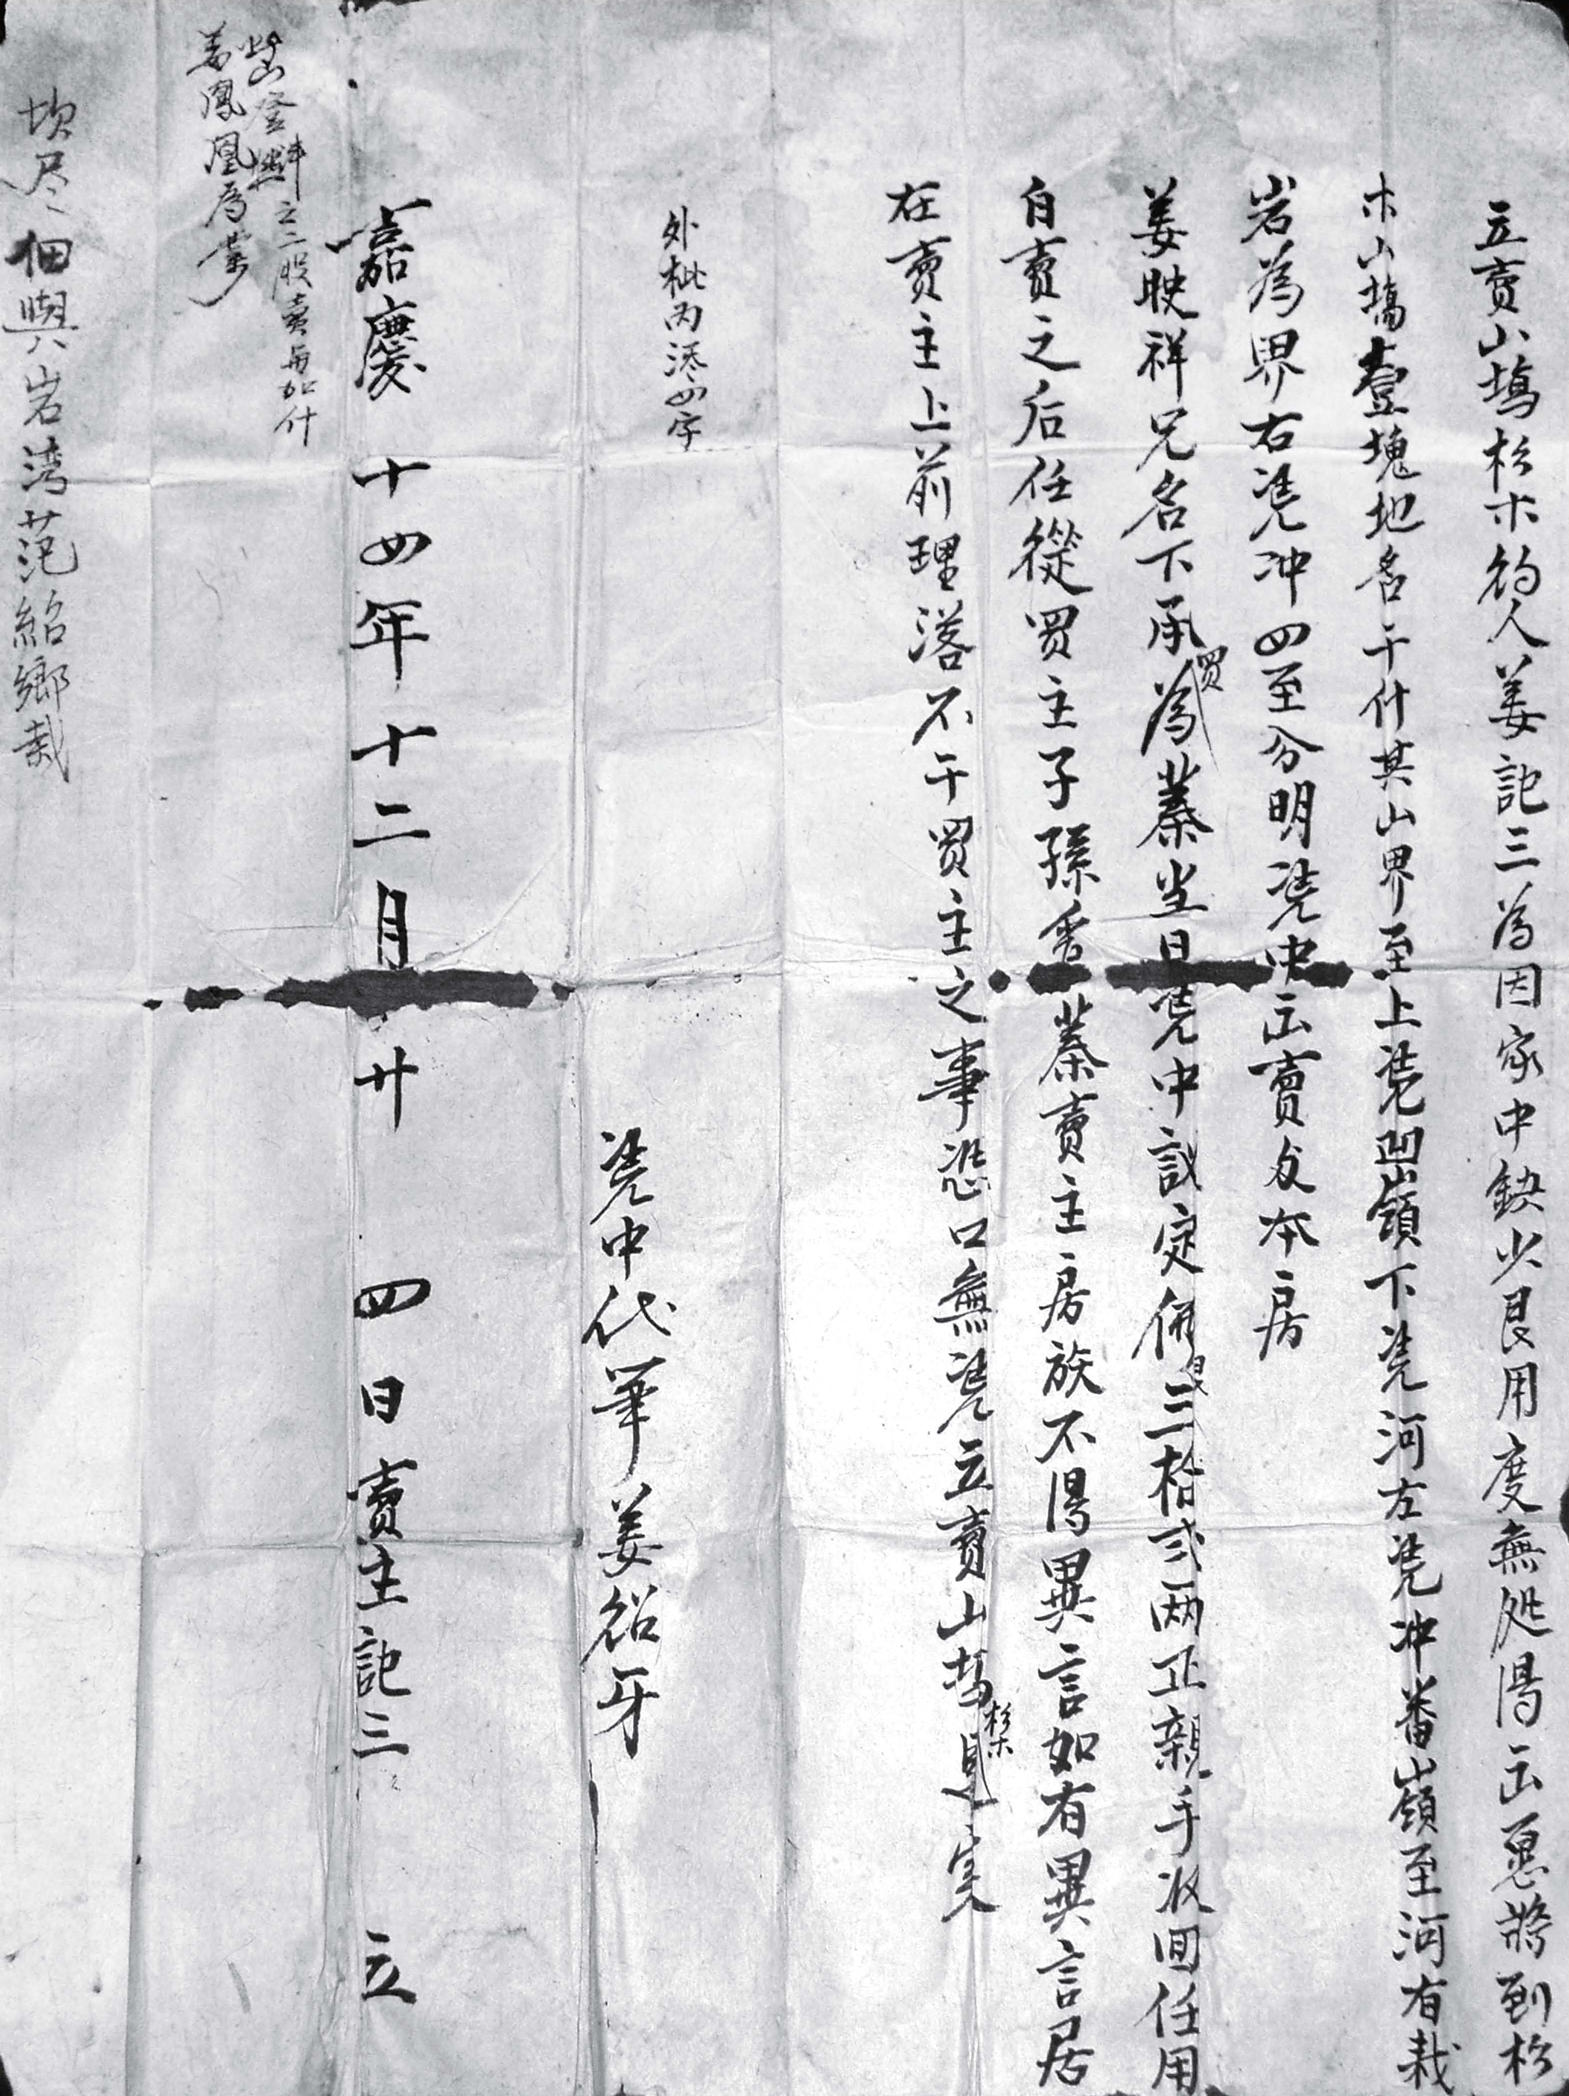 立賣山塲杉木約人姜記三為因家中缺少艮用度無処得出意將到杉
木山塲壹塊地名干什其山界至上凴凹嶺下凴河左凴冲番嶺至河有栽
岩為界右凴冲四至分明凴中出賣与本房
姜映祥兄名下承買為業當日凴中議定價艮三拾弍两正親手收回任用
自賣之后任從買主子孫管業賣主房族不得異言如有異言居
在賣主上前理落不干買主之事恐口無凴立賣山塲杉木是实
外枇丙添四字
凴中代筆姜紹牙
嘉慶十四年十二月廿四日賣主記三 立
此山登科之二股賣与加什
姜鳳凰為業
坎尽佃與岩湾范紹鄉栽